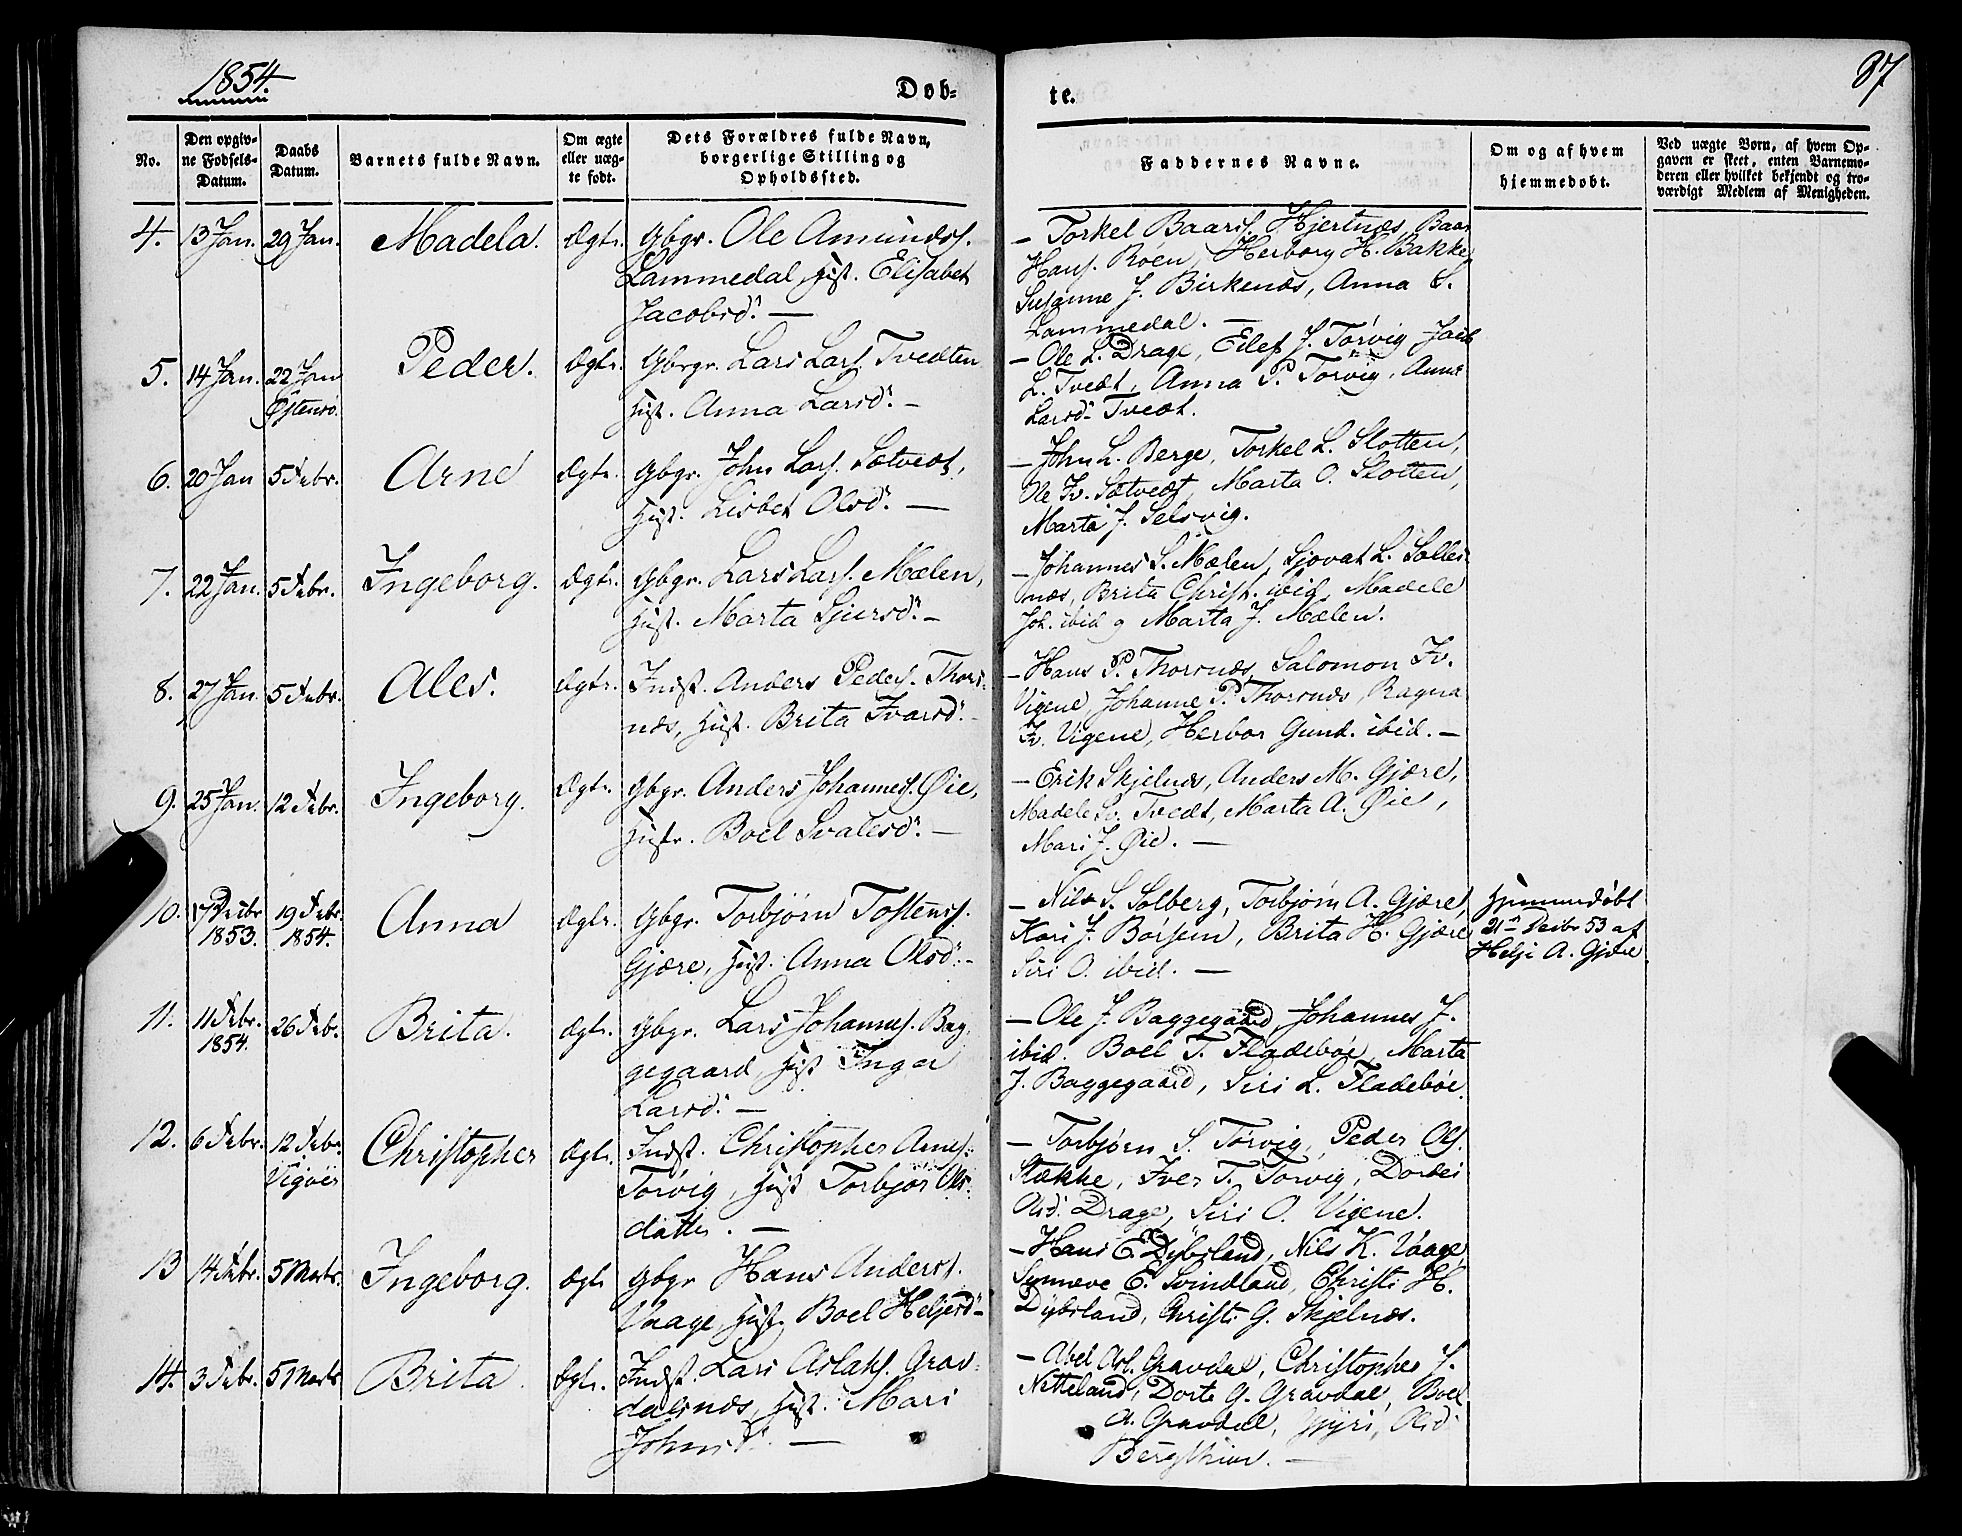 1854.
Døb-
te.
87
No.
Den opgiv-
ne Fødsels-
Datum.
Daabs
Datum.
Barnets fulde Navn.
Om ægte
eller uæg-
te født.
Dets Forældres fulde Navn,
borgerlige Stilling og
Opholdssted.
Faddernes Navne.
Om og af hvem
hjemmedøbt.
Ved uægte Børn, af hvem Op-
gaven er skeet, enten Barnemo-
deren eller hvilket bekjendt og tro-
værdigt Medlem af Menigheden.
4. 13 Jan. 29 Jan. Madela. Ægte. Gbgr. Ole Amunds.
Lammedal, Hust. Elisabet
Jacobsd. —
— Torkel Baars. Hjertnæs, Baar
Hans. Röen, Herborg H. Bakke,
Susanne J. Birkenæs, Anna S.
Lammedal. —
5. 14 Jan. 22 Jan. Peder. Ægte. Gbgr. Lars Lars. Tvedten
Østensø.
Hust. Anna Larsd. —
— Ole L. Drage, Eilef J. Torvig, Jacob
L. Tvedt, Anna P. Torvig, Anna
Larsd. Tvedt.
6. 20 Jan 5 Febr. Arne Ægte. Gbgr. John Lars. Sætvedt,
Hust. Lisbet Olsd. —
— John L. Berge, Torkel L. Slotten,
Ole Iv. Sætvedt, Marta O. Slotten,
Marta J. Selsvig.
7. 22 Jan. 5 Febr. Ingeborg. Ægte. Gbgr. Lars Lars. Mælen,
Hust. Marta Sjursd. —
— Johannes S. Mælen, Sjovat L. Solles-
næs, Brita Christ. ibid, Madele
Joh. ibid g Marta J. Mælen.
8. 27 Jan. 5 Febr. Ales. Ægte. Indst. Anders Peders. Thors-
næs, Hust. Brita Ivarsd. —
— Hans P. Thorsnæs, Salomon Iv.
Vigene, Johanne P. Thorsnæs, Ragna
Iv. Vigene, Herbor Gund. ibid. —
9. 25 Jan. 12 Febr. Ingeborg. Ægte. Gbgr. Anders Johannes. Øie,
Hustr. Boel Svalesd. —
— Erik Skjelnæs, Anders M. Gjære,
Madele Sv. Tvedt, Marta A. Øie,
Mari J. Øie. —
10. 17 Decbr 19 Febr. Anna Ægte. Gbgr. Torbjørn Tostens.
1853. 1854.
Gjære, Hust. Anna Olsd. —
— Nils S. Solberg, Torbjørn A. Gjære,
Kari J. Børsem, Brita H. Gjære,
Siri O. ibid. —
Hjemmedøbt
21 Decbr 53 af
Helje A. Gjære
11. 11 Febr. 26 Feb. Brita. Ægte. Gbgr. Lars Johannes. Bag-
1854.
gegaard, Hust Inga
Larsd. —
— Ole J. Baggegaard, Johannes J.
ibid. Boel T. Fladebøe, Marta
J. Baggegaard, Siri L. Fladebøe.
12. 6 Febr. 12 Febr. Christopher Ægte. Indst. Christopher Arnes.
Vigøer
Torvig, Hust Torbjør Ols-
datter. —
— Torbjørn S. Torvig, Peder Ols.
Stække, Iver T. Torvig, Dordei
Olsd. Drage, Siri O. Vigene.
13 14 Febr. 5 Marts. Ingeborg. Ægte Gbgr Hans Anders.
Vaage, Hust. Boel Heljesd —
— Hans E. Dybsland, Nils K. Vaage,
Synneve E. Svindland, Christi H.
Dybsland, Christi G. Skjelnæs.
14. 3 Febr. 5 Marts Brita Ægte. Indst. Lars Aslaks. Grav-
dalsnæs, Hust. Mari
Johnsd. —
— Abel Asl. Gravdal, Christopher J.
Netteland, Dorte G. Gravdal, Boel
A. Gravdal, Olsd.
—